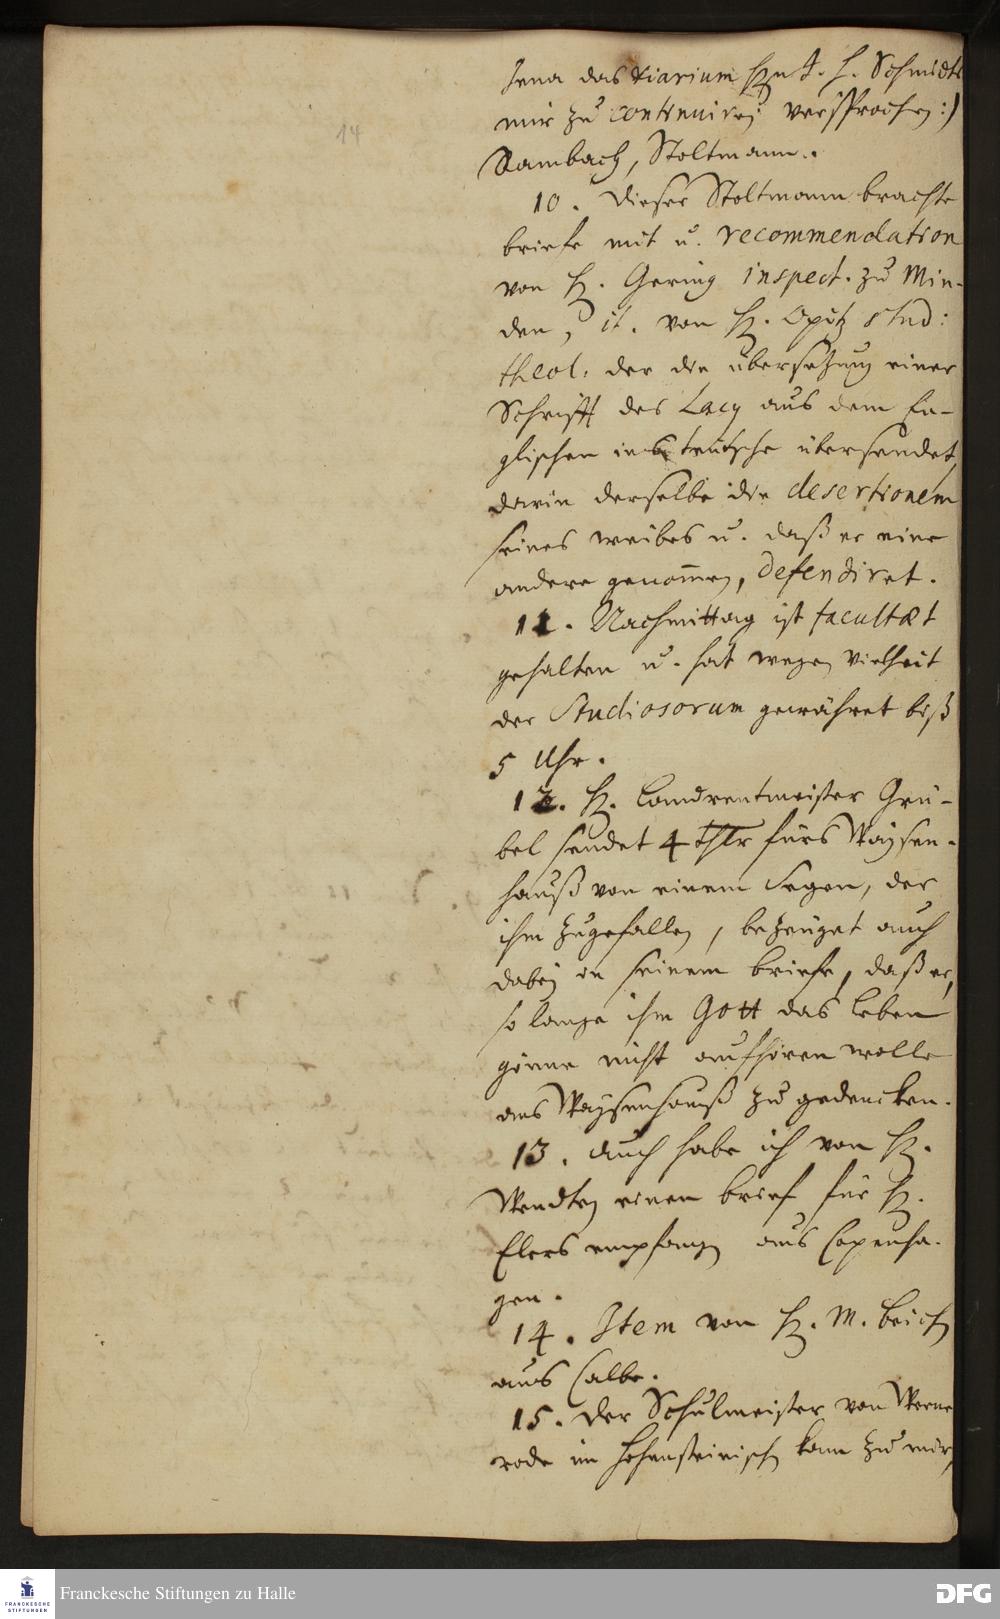 Jena das Diarium Hn J. H. Schmidts
mir zu continuiren versprochen:)
Rambach, Stoltmann.
14
10. Dieser Stoltmann brachte
briefe mit u. recommendation
von H. Gering inspect. zu Min-
den, it. von H. Opitz stud:
theol. der die übersetzung einer
Schrifft des Lacy aus dem En-
glischen ins teutsche übersendet,
darin derselbe die desertionem
seines weibes u. daß er eine
andere genom̄en, defendiret.
11. Nachmittag ist facultæt
gehalten u. hat wegen vielheit
der Studiosorum gewähret biß
5 Uhr.
12. H. Landrentmeister Grü-
bel sendet 4 Thlr fürs Waysen-
hauß von einem Segen, der
ihm zugefallen, bezeuget auch
dabey in seinem briefe, daß er,
so lange ihm Gott das leben
gönne nicht aufhören wolle
ans Waysenhauß zu gedencken.
13. Auch habe ich von H.
Wendten einen brief für H.
Elers empfangen aus Copenha-
gen.
14. Item von H. M. Beich
aus Calbe.
15. Der Schulmeister von Werne
rode im Hohensteinischen kam zu mir,
Franckesche Stiftungen zu Halle
FRANCKESCHE
STIFTUNGEN
DFG